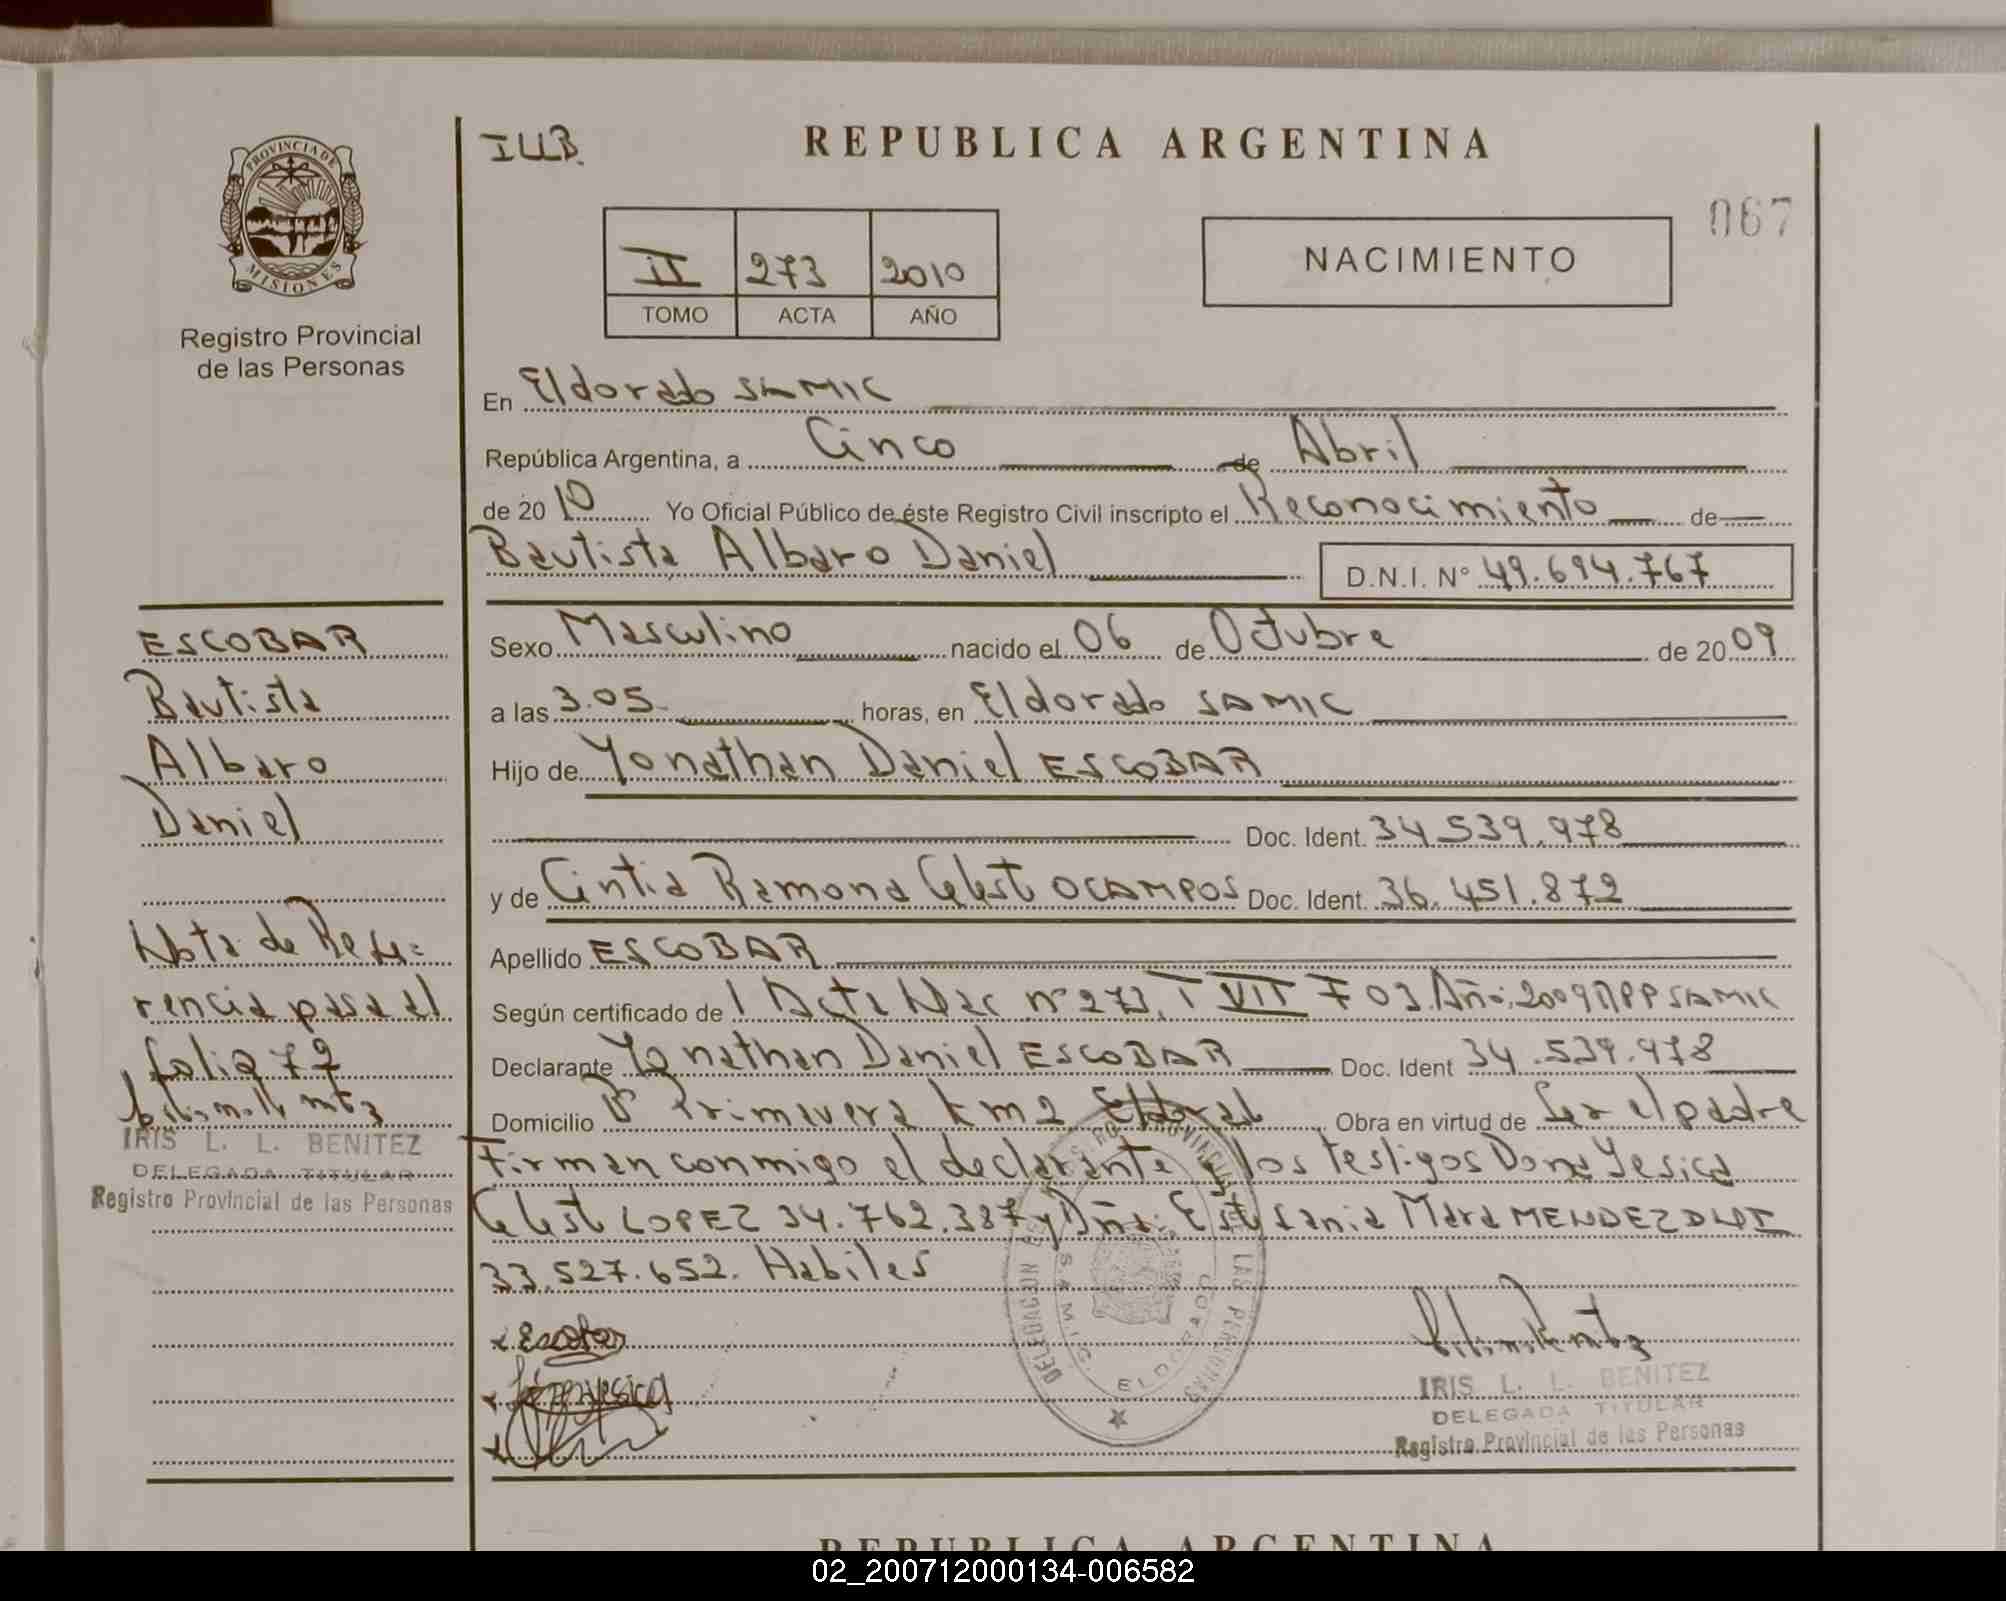 PROVINCIA DE
MISIONES
Registro Provincial
de las Personas
ESCOBAR
Bautista
Albaro
Daniel
Nota de Refe=
rencia pasa al
folio 72
IRIS L. L. BENITEZ
DELEGADA TITULAR
Registro Provincial de las Personas
REPUBLICA ARGENTINA
067
II 273 2010
TOMO ACTA AÑO
NACIMIENTO
En Eldorado SAMIC
República Argentina, a Cinco de Abril
de 2010 Yo Oficial Público de éste Registro Civil inscripto el Reconocimiento de
Bautista Albaro Daniel D.N.I. N° 49.694.767
Sexo Masculino nacido el 06 de Octubre de 2009
a las 3.05 horas, en Eldorado SAMIC
Hijo de Yonathan Daniel ESCOBAR
Doc. Ident. 34.539.978
y de Cintia Ramona Celest OCAMPOS Doc. Ident. 36.451.872
Apellido ESCOBAR
Según certificado de 1 Acta Nac n° 273, T VII F 03 Año: 2009 RPP SAMIC
Declarante Yonathan Daniel ESCOBAR Doc. Ident 34.539.978
Domicilio B° Primavera km 2 Eldorad Obra en virtud de Ser el padre
Firman conmigo el declarante y los testigos Dona Yesica
Celest LOPEZ 34.762.387 y Dña: Estefania Mara MENDEZ DNI
33.527.652. Habiles
x Escobar
DELEGACION REGISTRO PROVINCIAL DE LAS PERSONAS
S.A.M.I.C. ELDORADO
IRIS L. L. BENITEZ
DELEGADA TITULAR
Registro Provincial de las Personas
REPUBLICA ARGENTINA
02_200712000134-006582